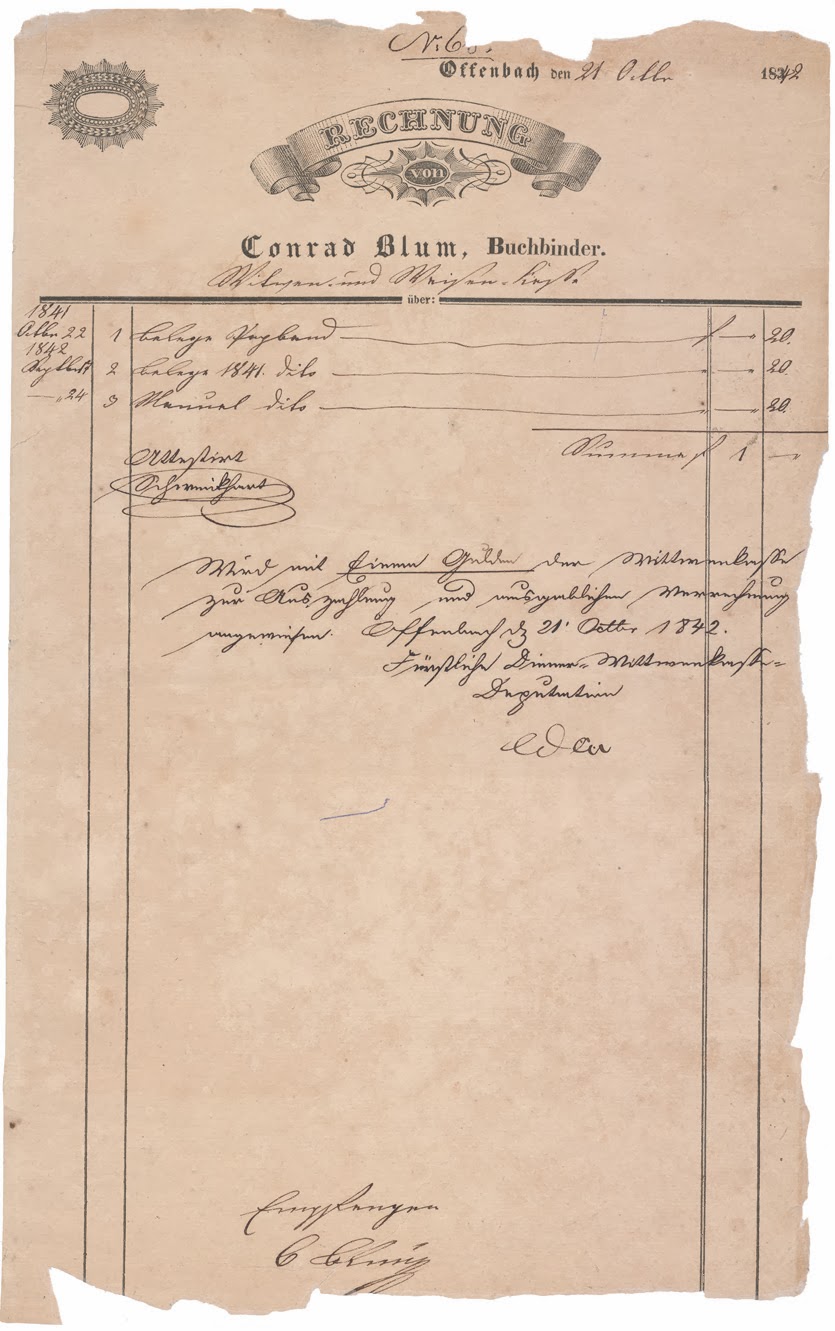 Offenbach den 21 Octbr 1842
RECHNUNG
von
Conrad Blum, Buchbinder.
Witwen- und Waisen-Casse
über:
1841
Octbr 22 1 belege Papband f — " 20.
1842
Septbr 2 belege 1841. dito " — " 20.
— " 24 3 Manual dito " — " 20.
Summa f 1 —
Attestirt
Wird mit Einem Gulden der Wittwenkasse
zur Auszahlung und ausgablichen Verrechnung
angewiesen. Offenbach dz 21' Octbr 1842.
Fürstliche Diener-Wittwenkasse-
Deputation
Empfangen
C Blum